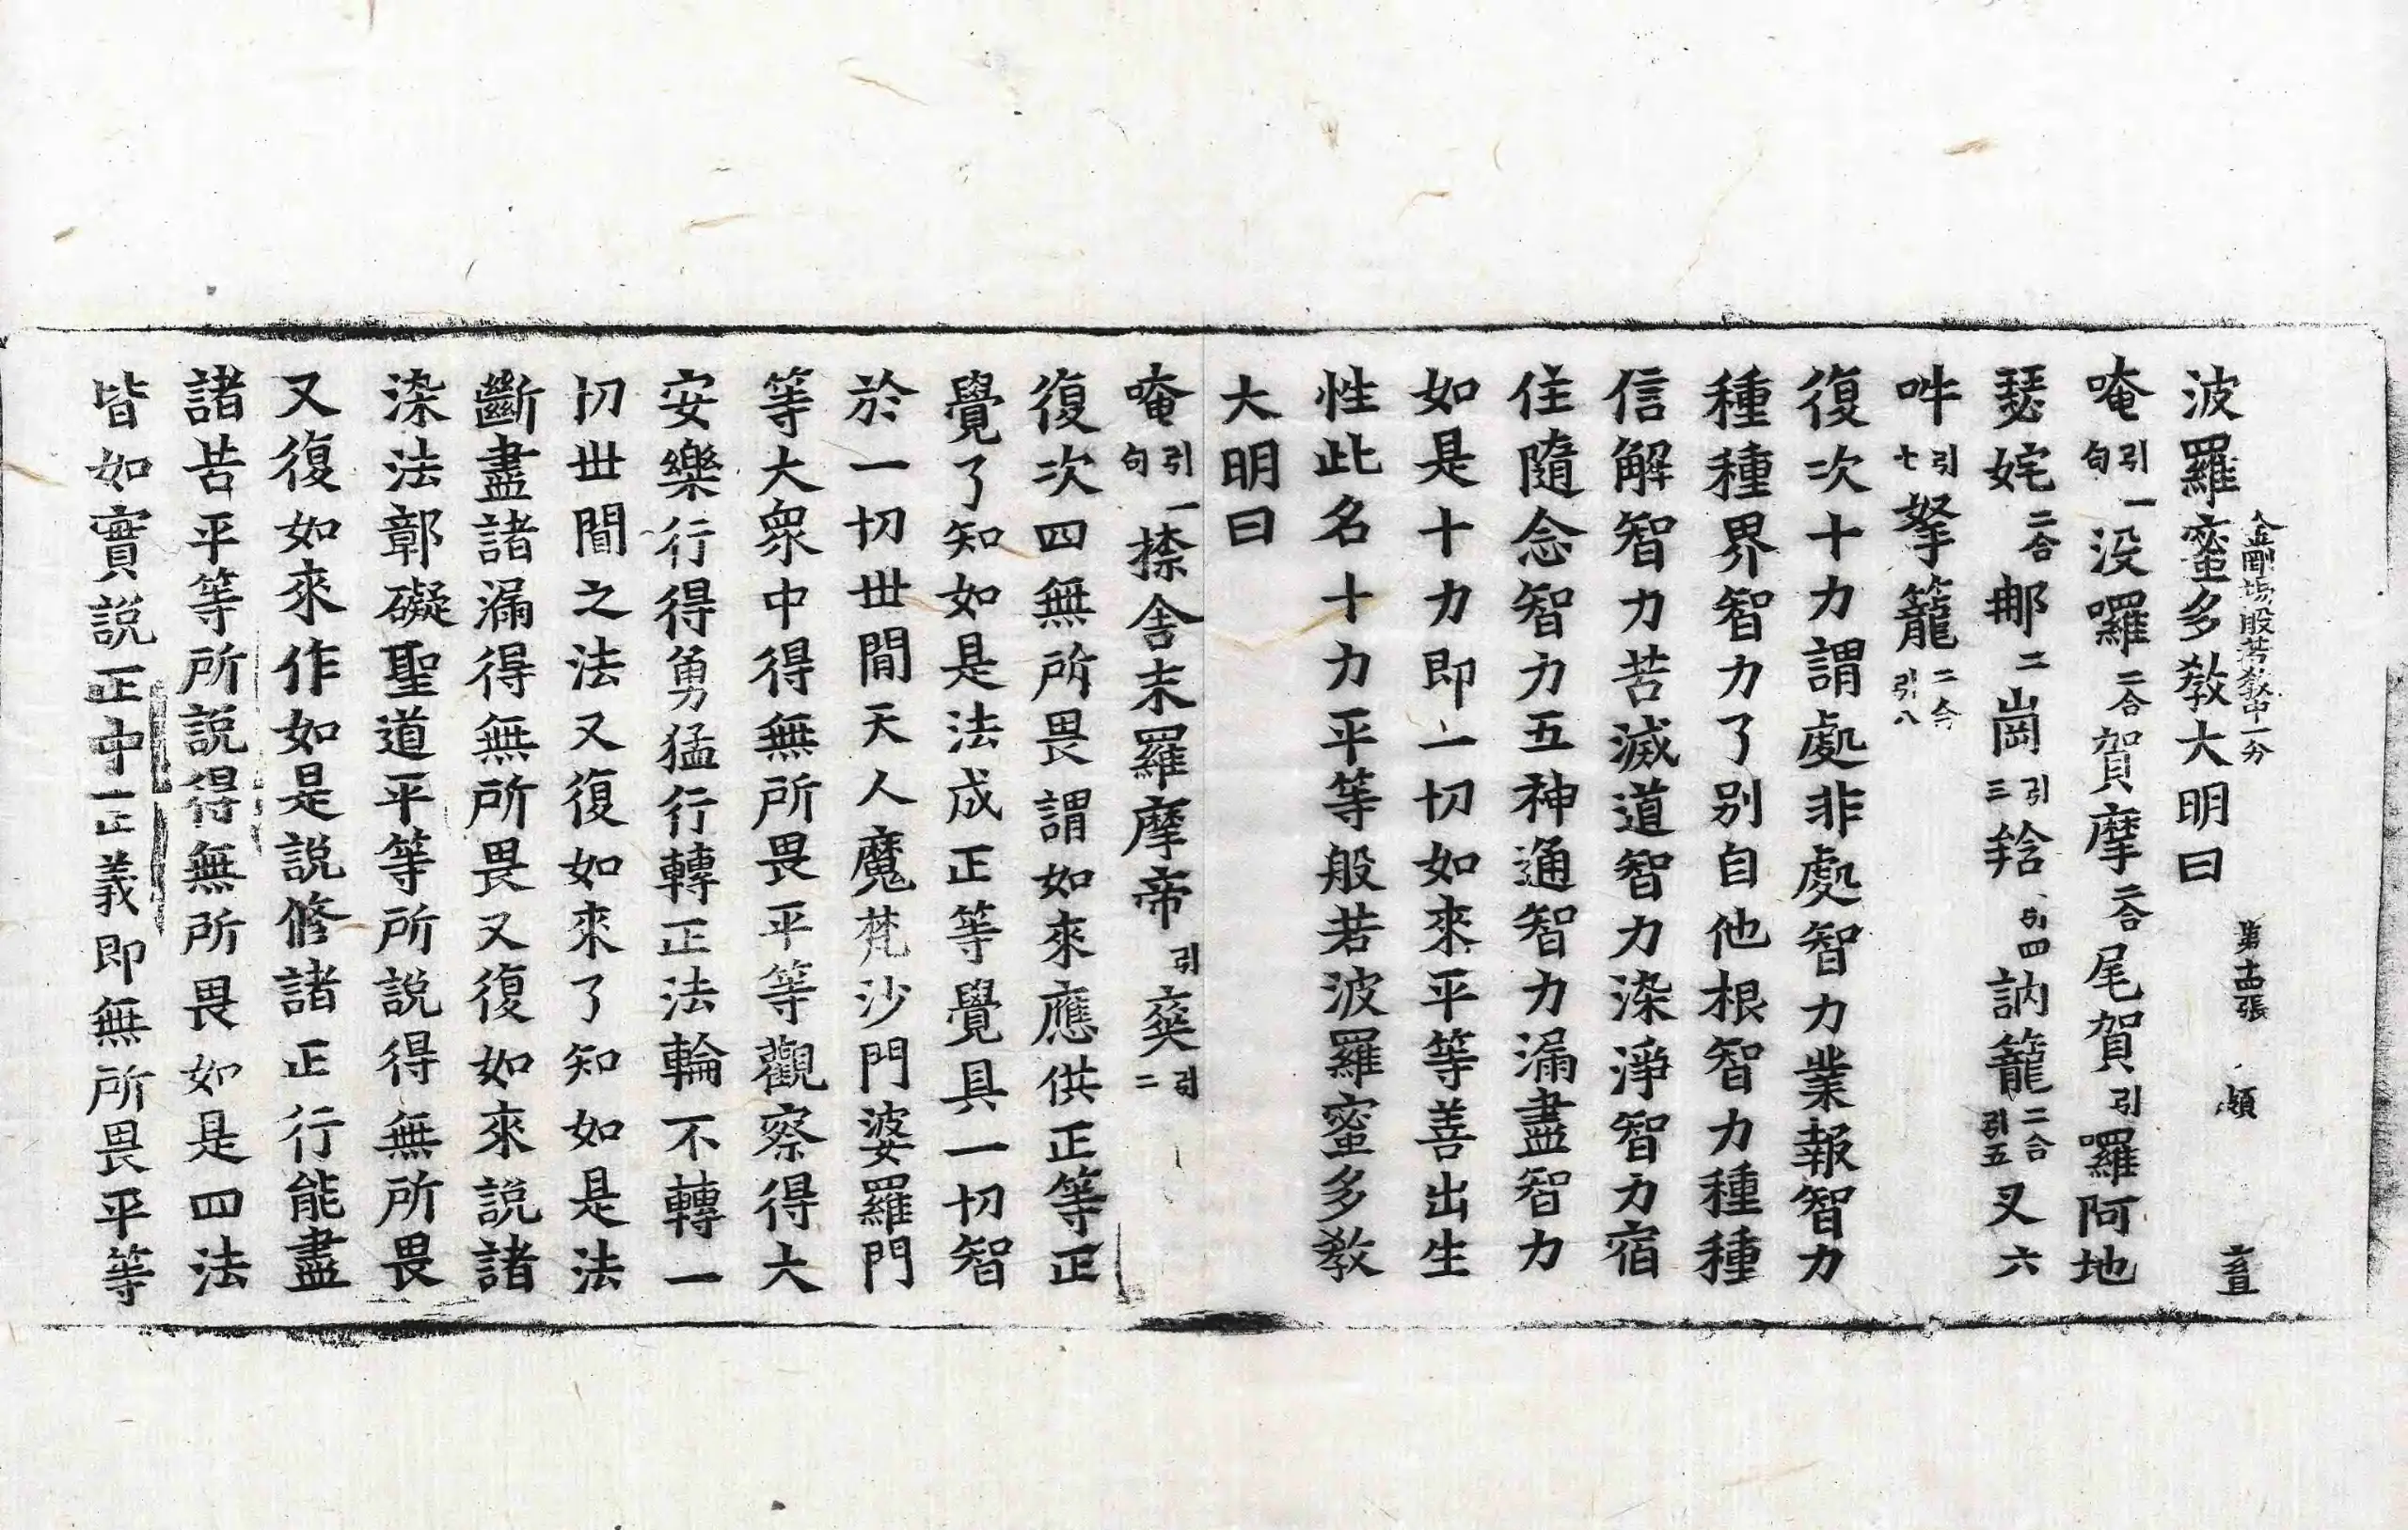 波羅蜜多教大明曰
金剛場般若教中一分 第十四張 頻 宣
唵引一句没囉二合賀摩二合尾賀引囉阿地
瑟姹二合那二崗引三捨引四訥籠二合引五叉六
吽引七拏籠二合引八
復次十力謂處非處智力業報智力
種種界智力了别自他根智力種種
信解智力苦滅道智力染淨智力宿
住隨念智力五神通智力漏盡智力
如是十力即一切如來平等善出生
性此名十力平等般若波羅蜜多教
大明曰
唵引一句捺舍末羅摩帝引𤙖引二
復次四無所畏謂如來應供正等正
覺了知如是法成正等覺具一切智
於一切世間天人魔梵沙門婆羅門
等大衆中得無所畏平等觀察得大
安樂行得勇猛行轉正法輪不轉一
切世間之法又復如來了知如是法
斷盡諸漏得無所畏又復如來説諸
染法鄣礙聖道平等所説得無所畏
又復如來作如是説修諸正行能盡
諸苦平等所説得無所畏如是四法
皆如實説正中一正義即無所畏平等